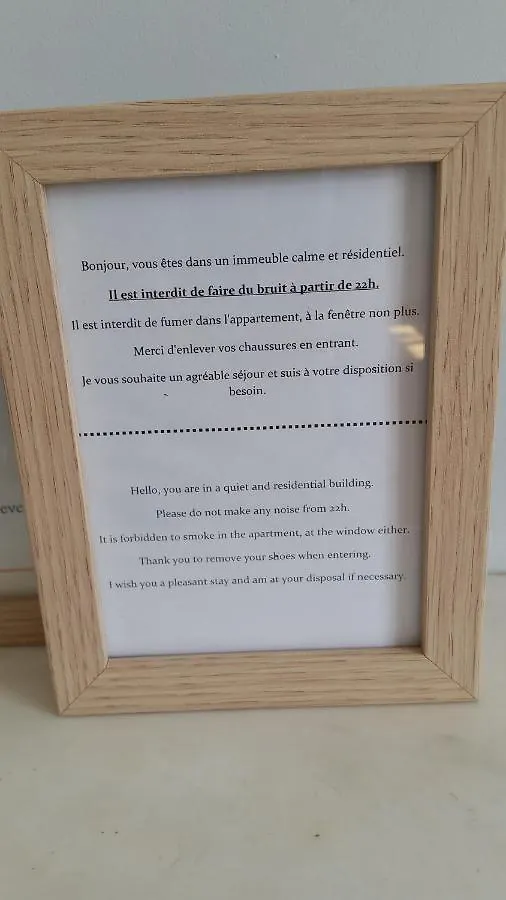 Bonjour, vous êtes dans un immeuble calme et résidentiel.
Il est interdit de faire du bruit à partir de 22h.
Il est interdit de fumer dans l'appartement, à la fenêtre non plus.
Merci d'enlever vos chaussures en entrant.
Je vous souhaite un agréable séjour et suis à votre disposition si
besoin.
Hello, you are in a quiet and residential building.
Please do not make any noise from 22h.
It is forbidden to smoke in the apartment, at the window either.
Thank you to remove your shoes when entering.
I wish you a pleasant stay and am at your disposal if necessary.